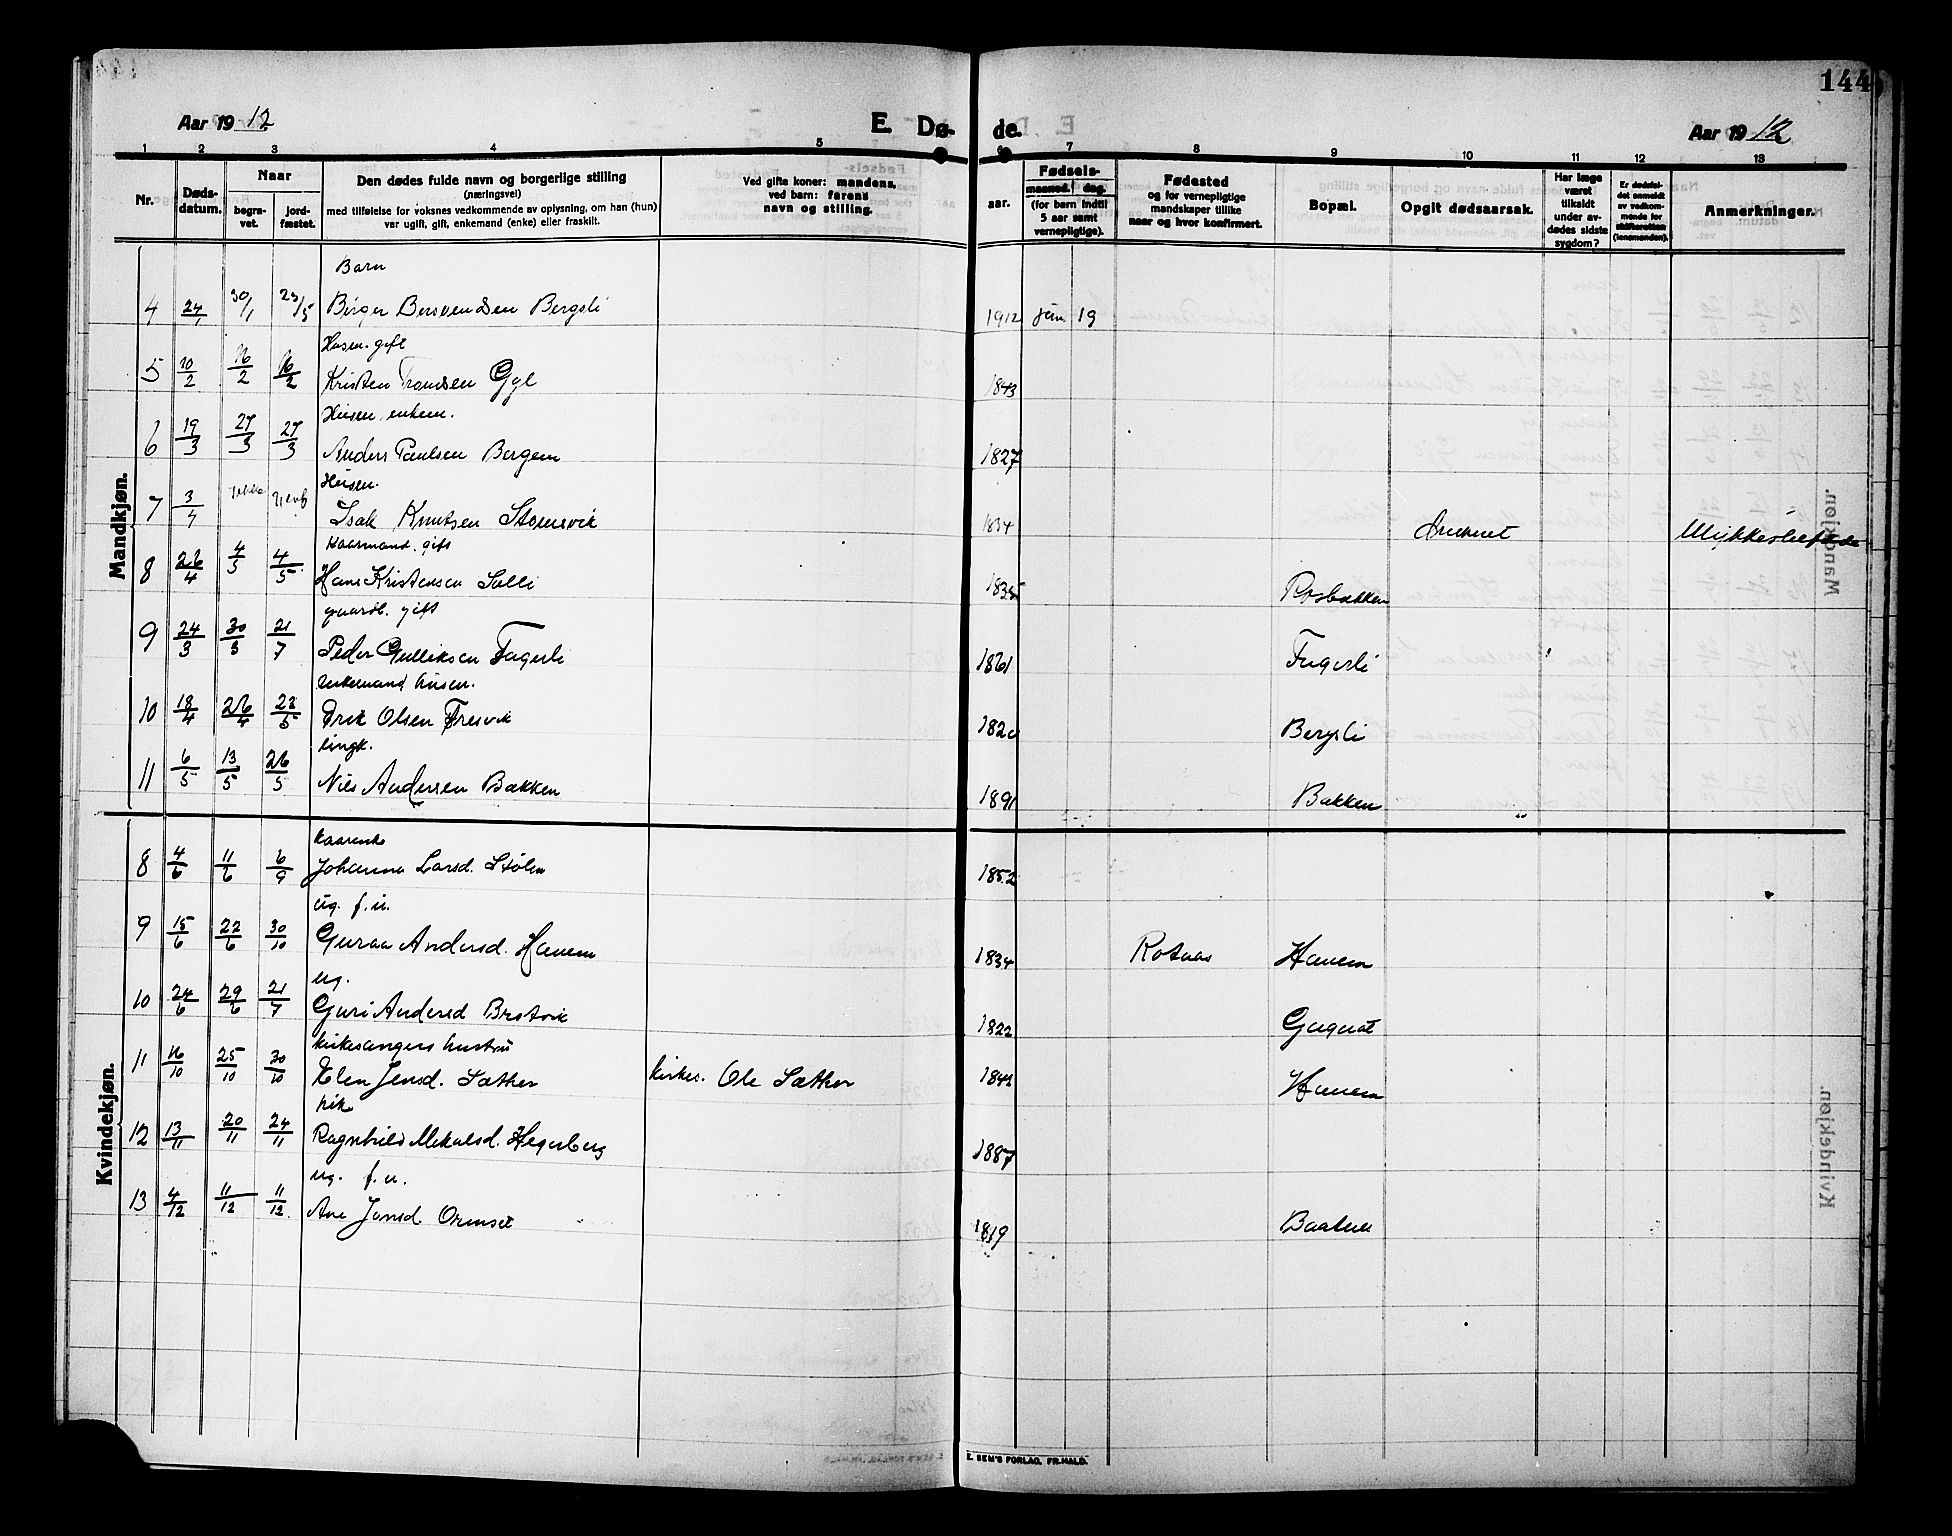 144
Aar 1912
E. Dø- de.
Aar 1912
1 2 3 4 5 6 7 8 9 10 11 12 13
Nr.
Døds-
datum.
Naar
begra-
vet.
jord-
fæstet.
Den dødes fulde navn og borgerlige stilling
(næringsvei)
med tilføielse for voksnes vedkommende av oplysning, om han (hun)
var ugift, gift, enkemand (enke) eller fraskilt.
Ved gifte koner: mandens,
ved barn: farens
navn og stilling.
aar.
Fødsels-
maaned. dag.
(for barn indtil
5 aar samt
vernepligtige).
Fødested
og for vernepligtige
mandskaper tillike
naar og hvor konfirmert.
Bopæl.
Opgit dødsaarsak.
Har læge
været
tilkaldt
under av-
dødes sidste
sygdom?
Er dødsfal-
det anmeldt
av vedkom-
mende for
skifteretten
(lensmanden).
Anmerkninger.
Mandkjøn.
Barn
4 24/1 30/1 23/5 Birger Bersvendsen Bergsli 1912 jan 19
Husm. gift
5 10/2 16/2 16/2 Kristen Gyl 1843
Husm. enkem.
6 19/3 27/3 27/3 Anders Paulsen Bergem 1827
Husm.
7 3/4 Isak Knutsen 1834 Druknet
Kaarmand. gift
8 26/4 4/5 4/5 Hans Kristensen 1835 Rosbakken
gaardb. gift
9 24/3 30/3 21/7 Peder Gulliksen Fagerli 1861 Fagerli
enkemand husm.
10 18/4 26/4 22/5 Erik Olsen Fresvik 1820 Bergsli
ungk.
11 6/5 13/5 26/5 Nils Andersen Bakken 1891 Bakken
Kvindekjøn.
Kaarenke
8 4/6 11/6 6/9 Johanna Larsd. Stølen 1852
ug. f.u.
9 15/6 22/6 30/10 Guraa Andersd. Hanem 1834 Rotaas Hanem
ug.
10 24/6 29/6 21/7 Guri Andersd 1822
kirkesangers hustru
11 16/10 25/10 30/10 Elen Jensd. Sæther kirkes. Ole Sæther 1841 Hanem
pike
12 13/11 20/11 24/11 Ragnhild Mekalsd. Hegerberg 1887
ug. f.u.
13 4/12 11/12 11/12 Ane Jonsd Ormset 1819
E. SEM'S FORLAG, FR.HALD.